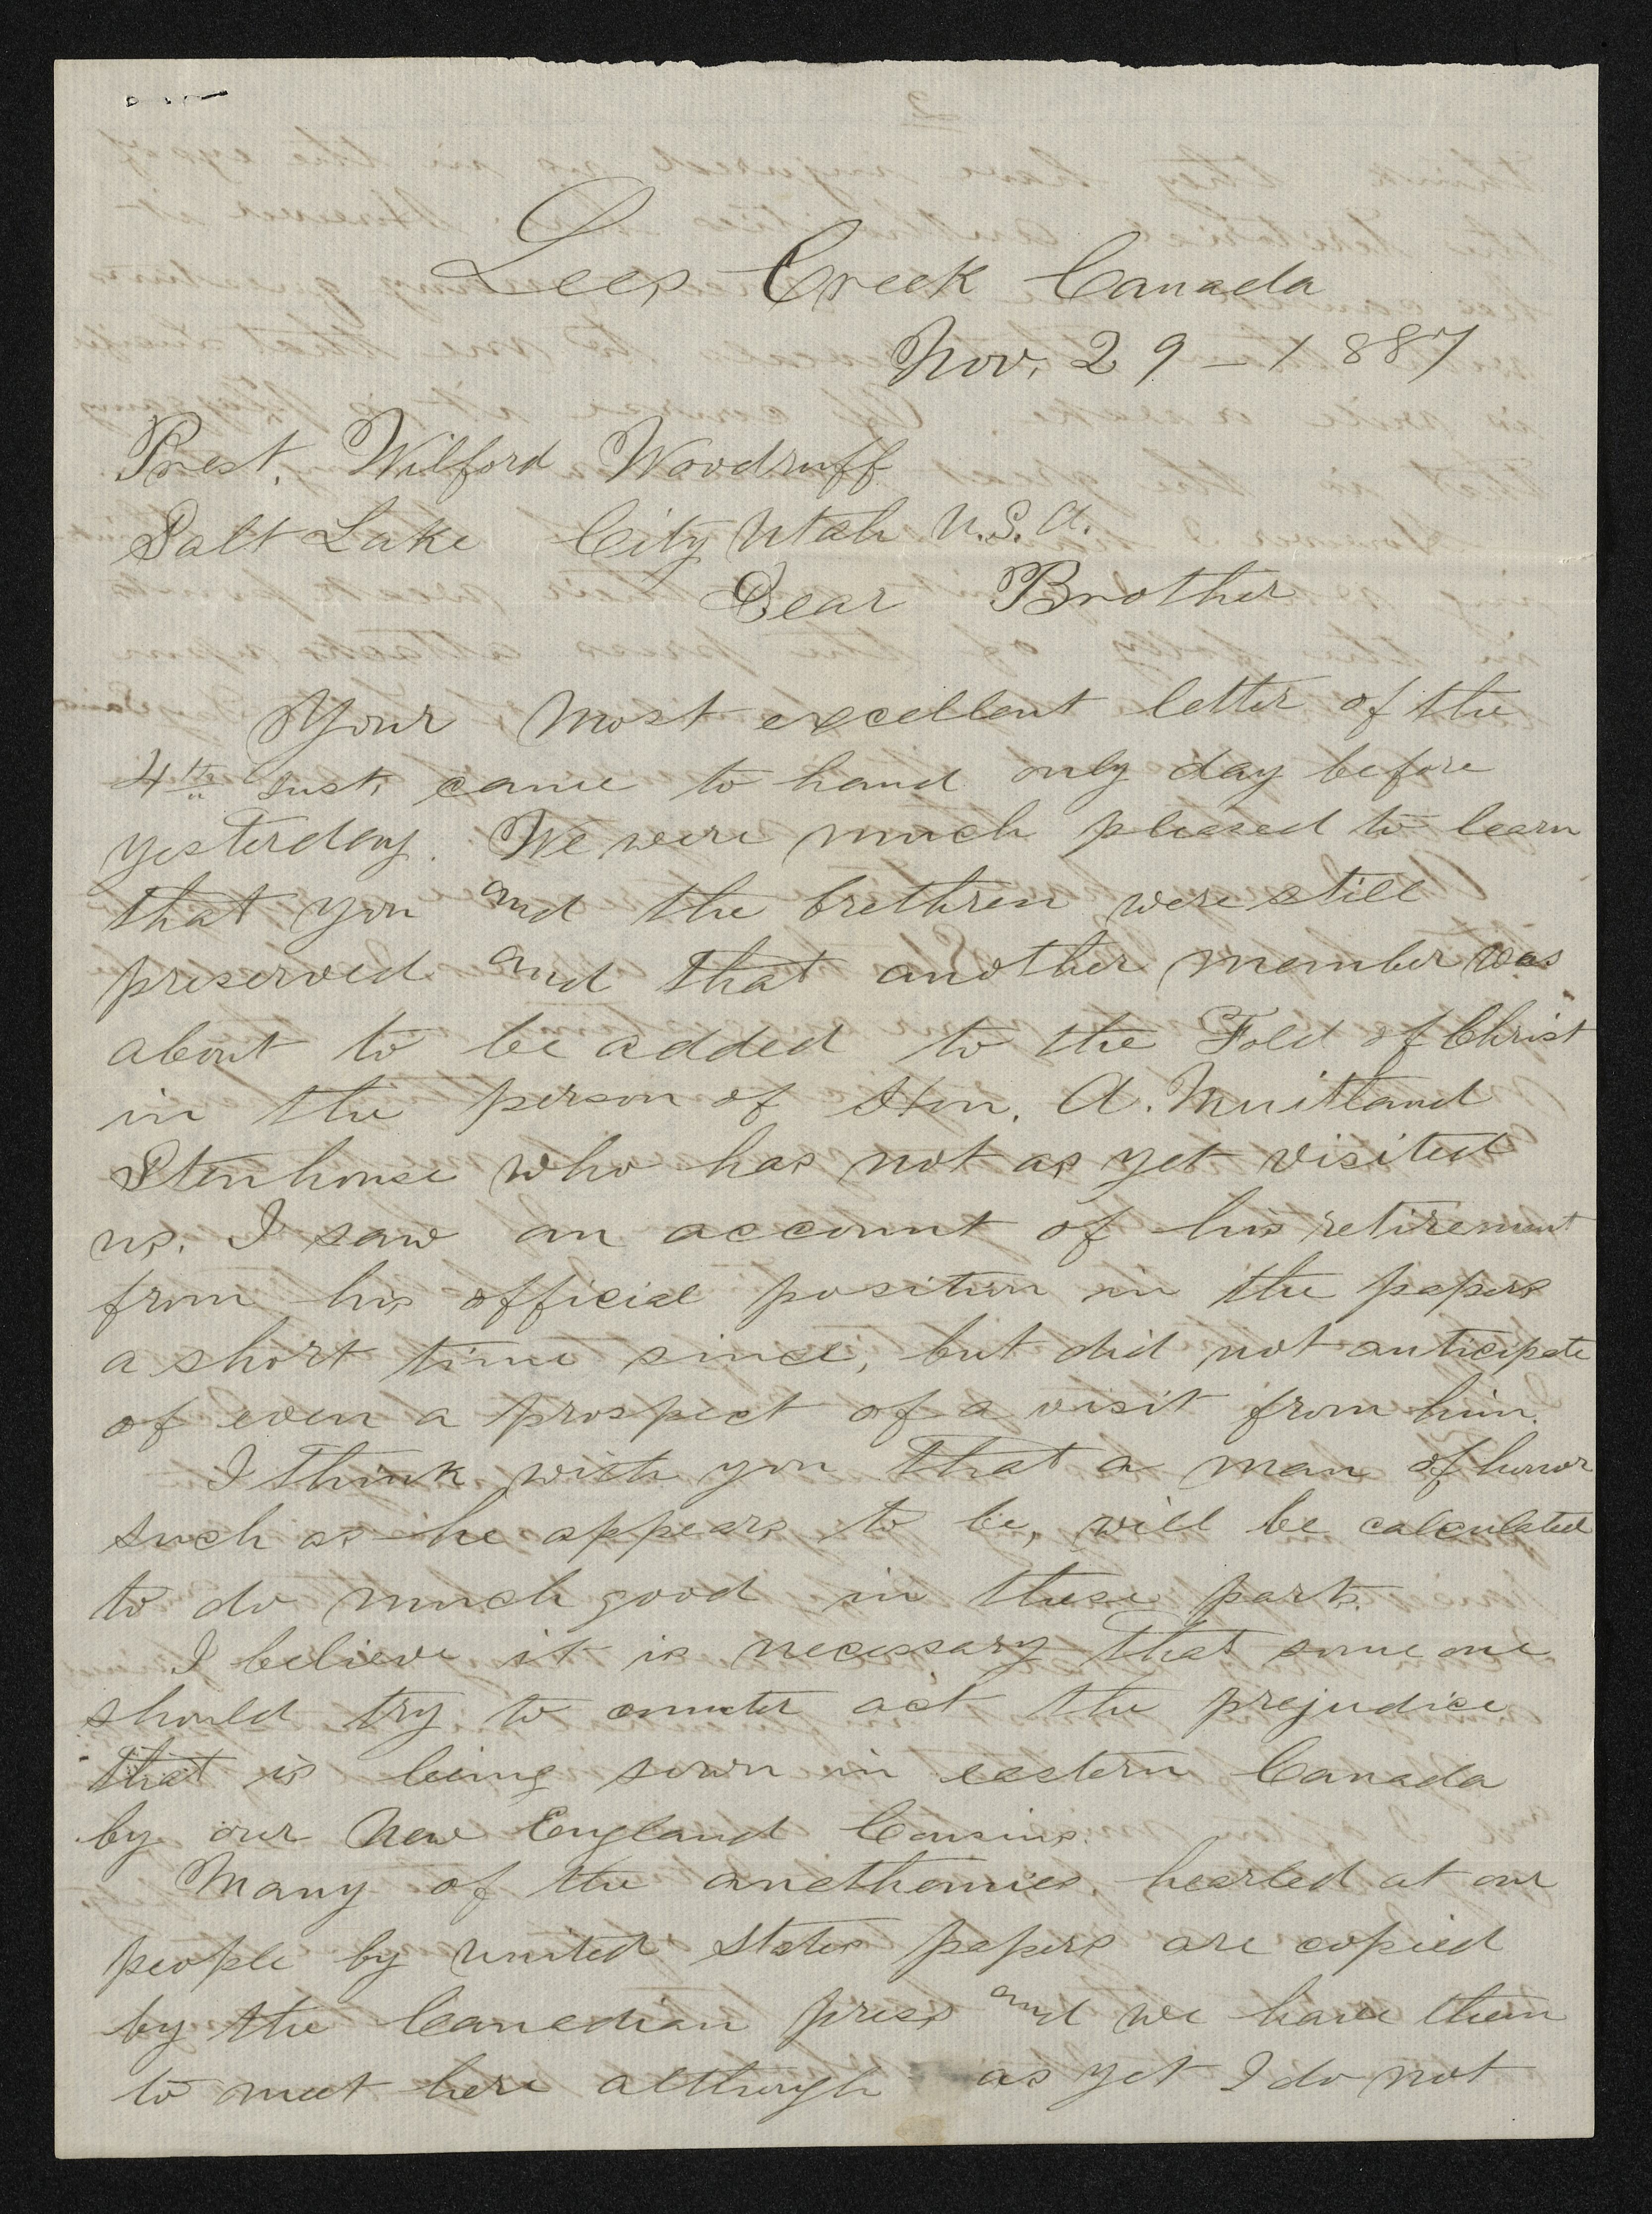 Lees Creek Canada
Nov. 29 - 1887
Prest. Wilford Woodruff
Salt Lake City Utah U.S.A.
Dear Brother
Your most excellent letter of the
4th inst, came to hand only day before
yesterday. We were much pleased to learn
that you and the brethren were still
preserved and that another member was
about to be added to the Fold of Christ
in the person of Hon. A. Muitland
Stenhouse who has not as yet visited
us. I saw an account of his retirement
from his official position in the papers
a short time since, but did not anticipate
of even a prospect of a visit from him.
I think with you that a man of honor
such as he appears to be, will be calculated
to do much good in these parts.
I believe it is necessary that some one
should try to counter act the prejudice
that is being sown in eastern Canada
by our New England Cousins.
Many of the anethemies hearled at our
people by united states papers are copied
by the Canedian press and we have them
to meet here although as yet I do not